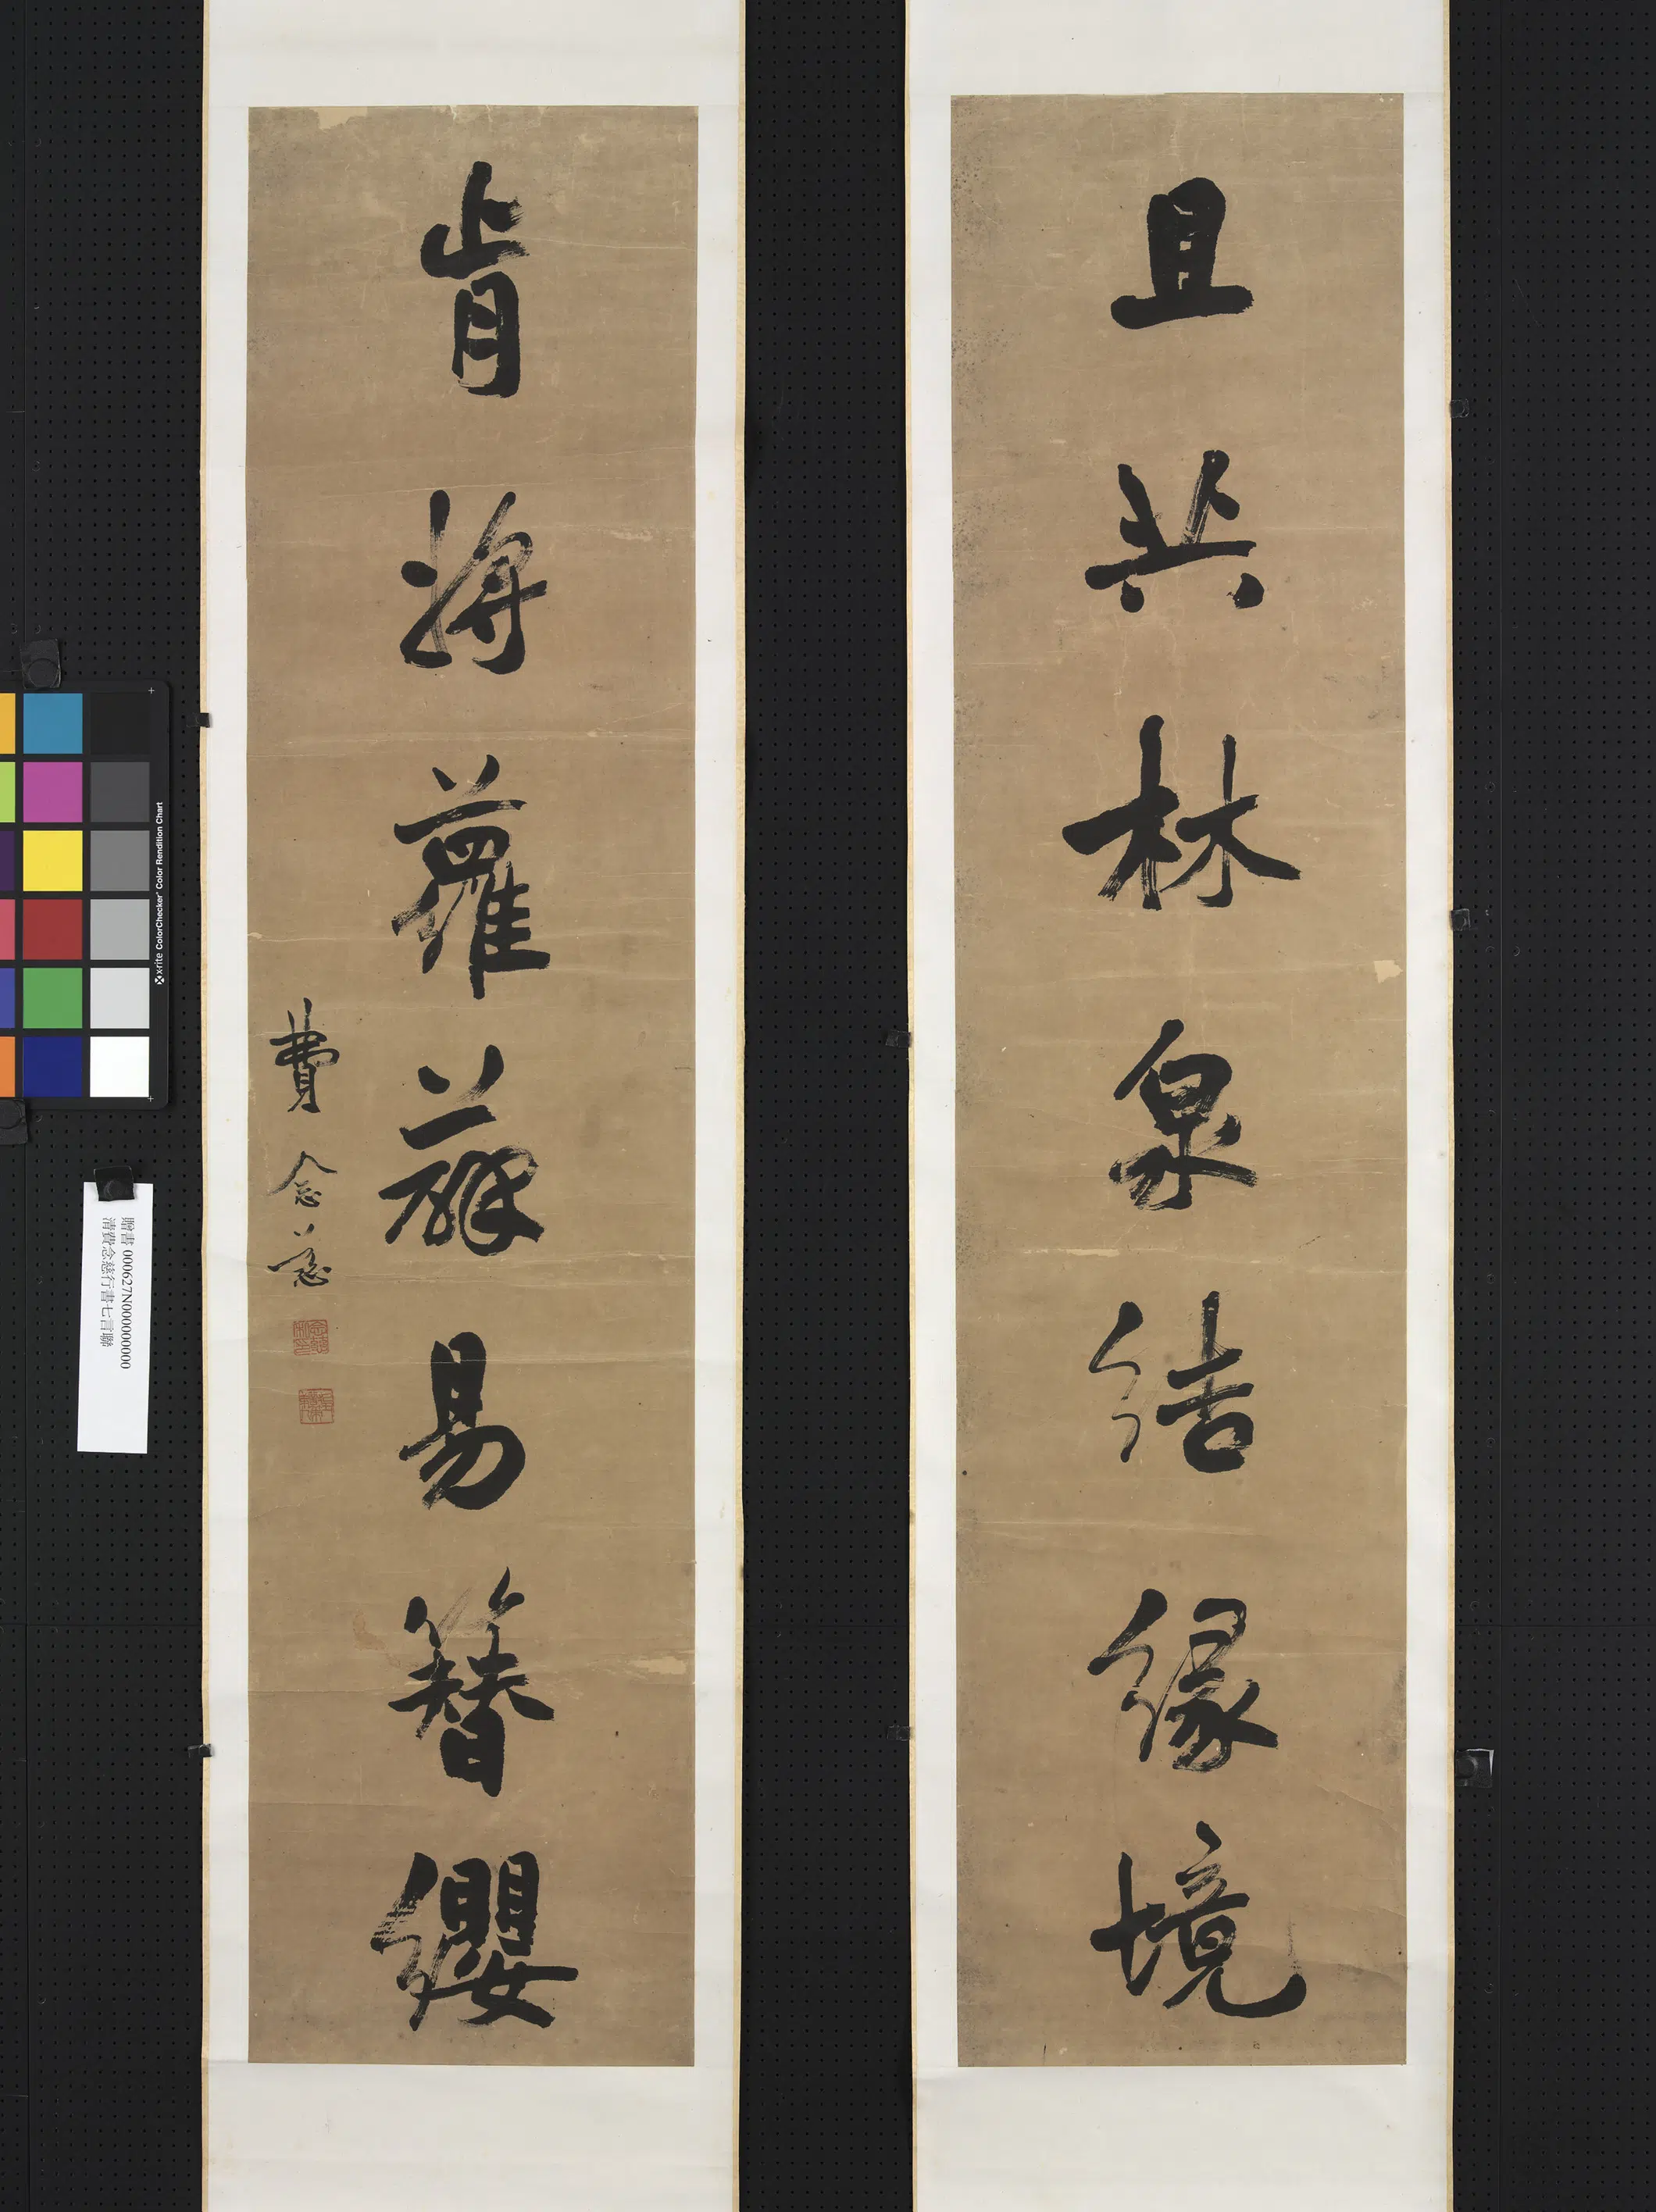 且共林泉結緣境
肯將蘿薜易簪纓
費念慈
贈書 000627N000000000
清費念慈行書七言聯
x-rite ColorChecker® Color Rendition Chart